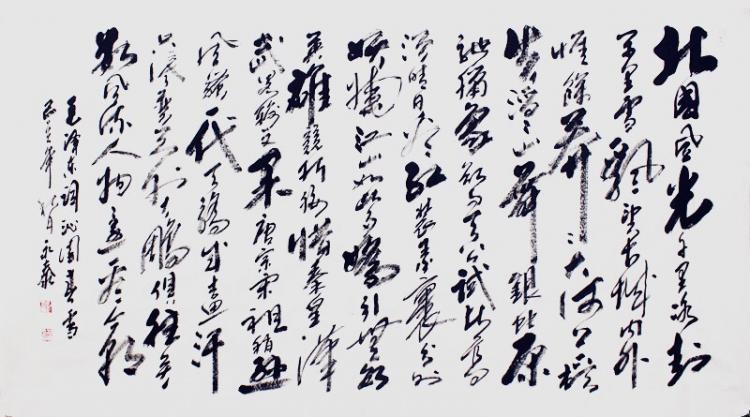 北國风光千里冰封
万里雪飘望长城内外
惟餘莽〻大河上下頓
失滔〻山舞銀蛇原
馳蠟象欲与天公試比高
須晴日看红装素裹分外
妖嬈江山如此多嬌引無数
英雄競折腰惜秦皇漢
武略输文采唐宗宋祖稍逊
风骚一代天骄成吉思汗
只识弯弓射大鵰俱往矣
数风流人物还看今朝
毛泽东词沁園春雪
年 月